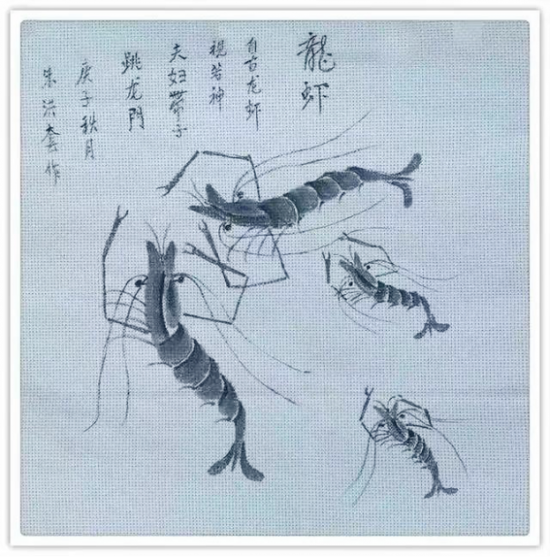 龍虾
自古龙虾
视若神
夫妇带子
跳龙門
庚子秋月
朱洪套作